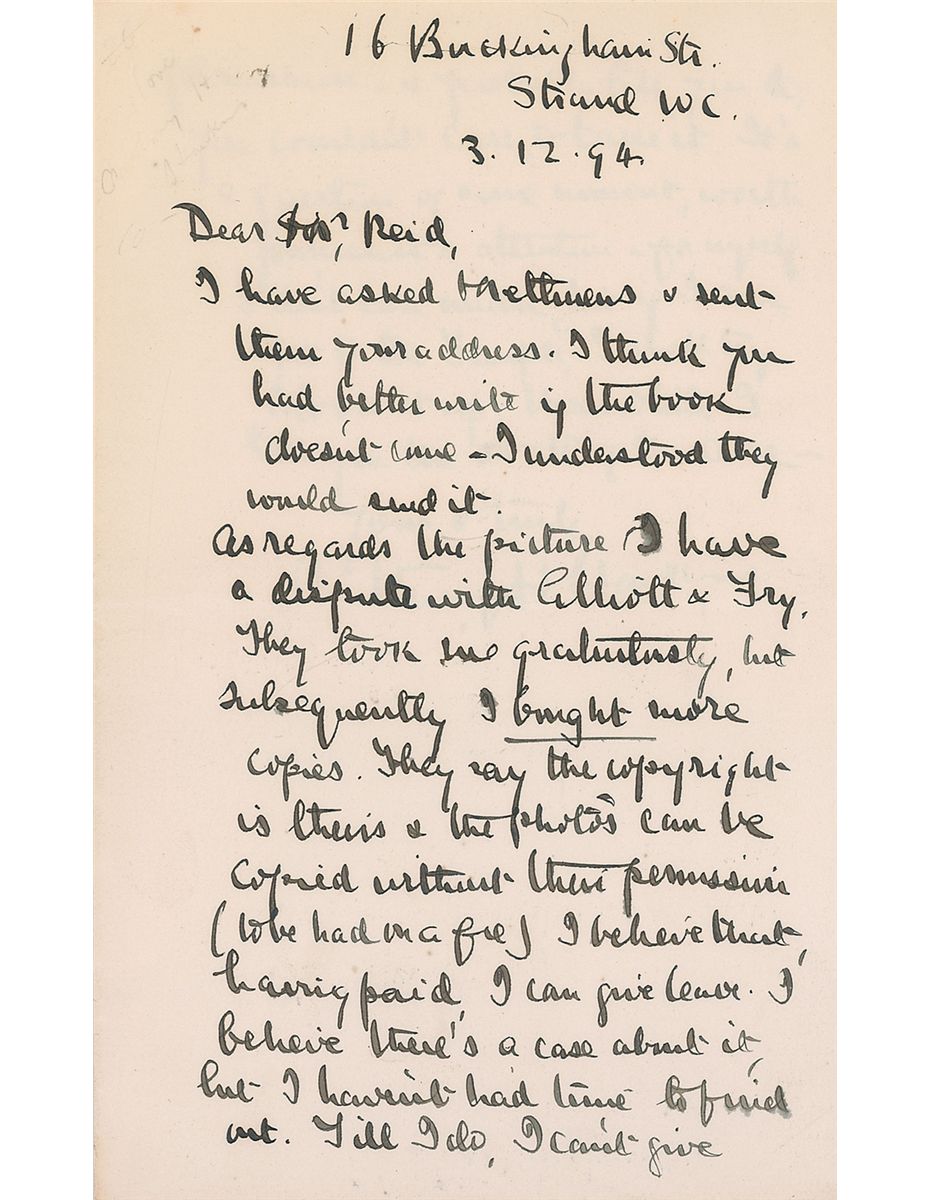 16 Buckingham Str.
Strand W C.
3. 12. 94.
Dear Reid,
I have asked & sent
them your address. I think you
had better write if the book
doesn't come - I understood they
would send it.
As regards the picture I have
a dispute with Elliott & Fry.
They took me gratuitously, but
subsequently I bought more
copies. They say the copyright
is theirs & the photos can be
copied without their permission
(to be had on a fee) I believe that,
having paid, I can give leave. I
believe there's a case about it,
but I haven't had time to find
out. Till I do, I can't give